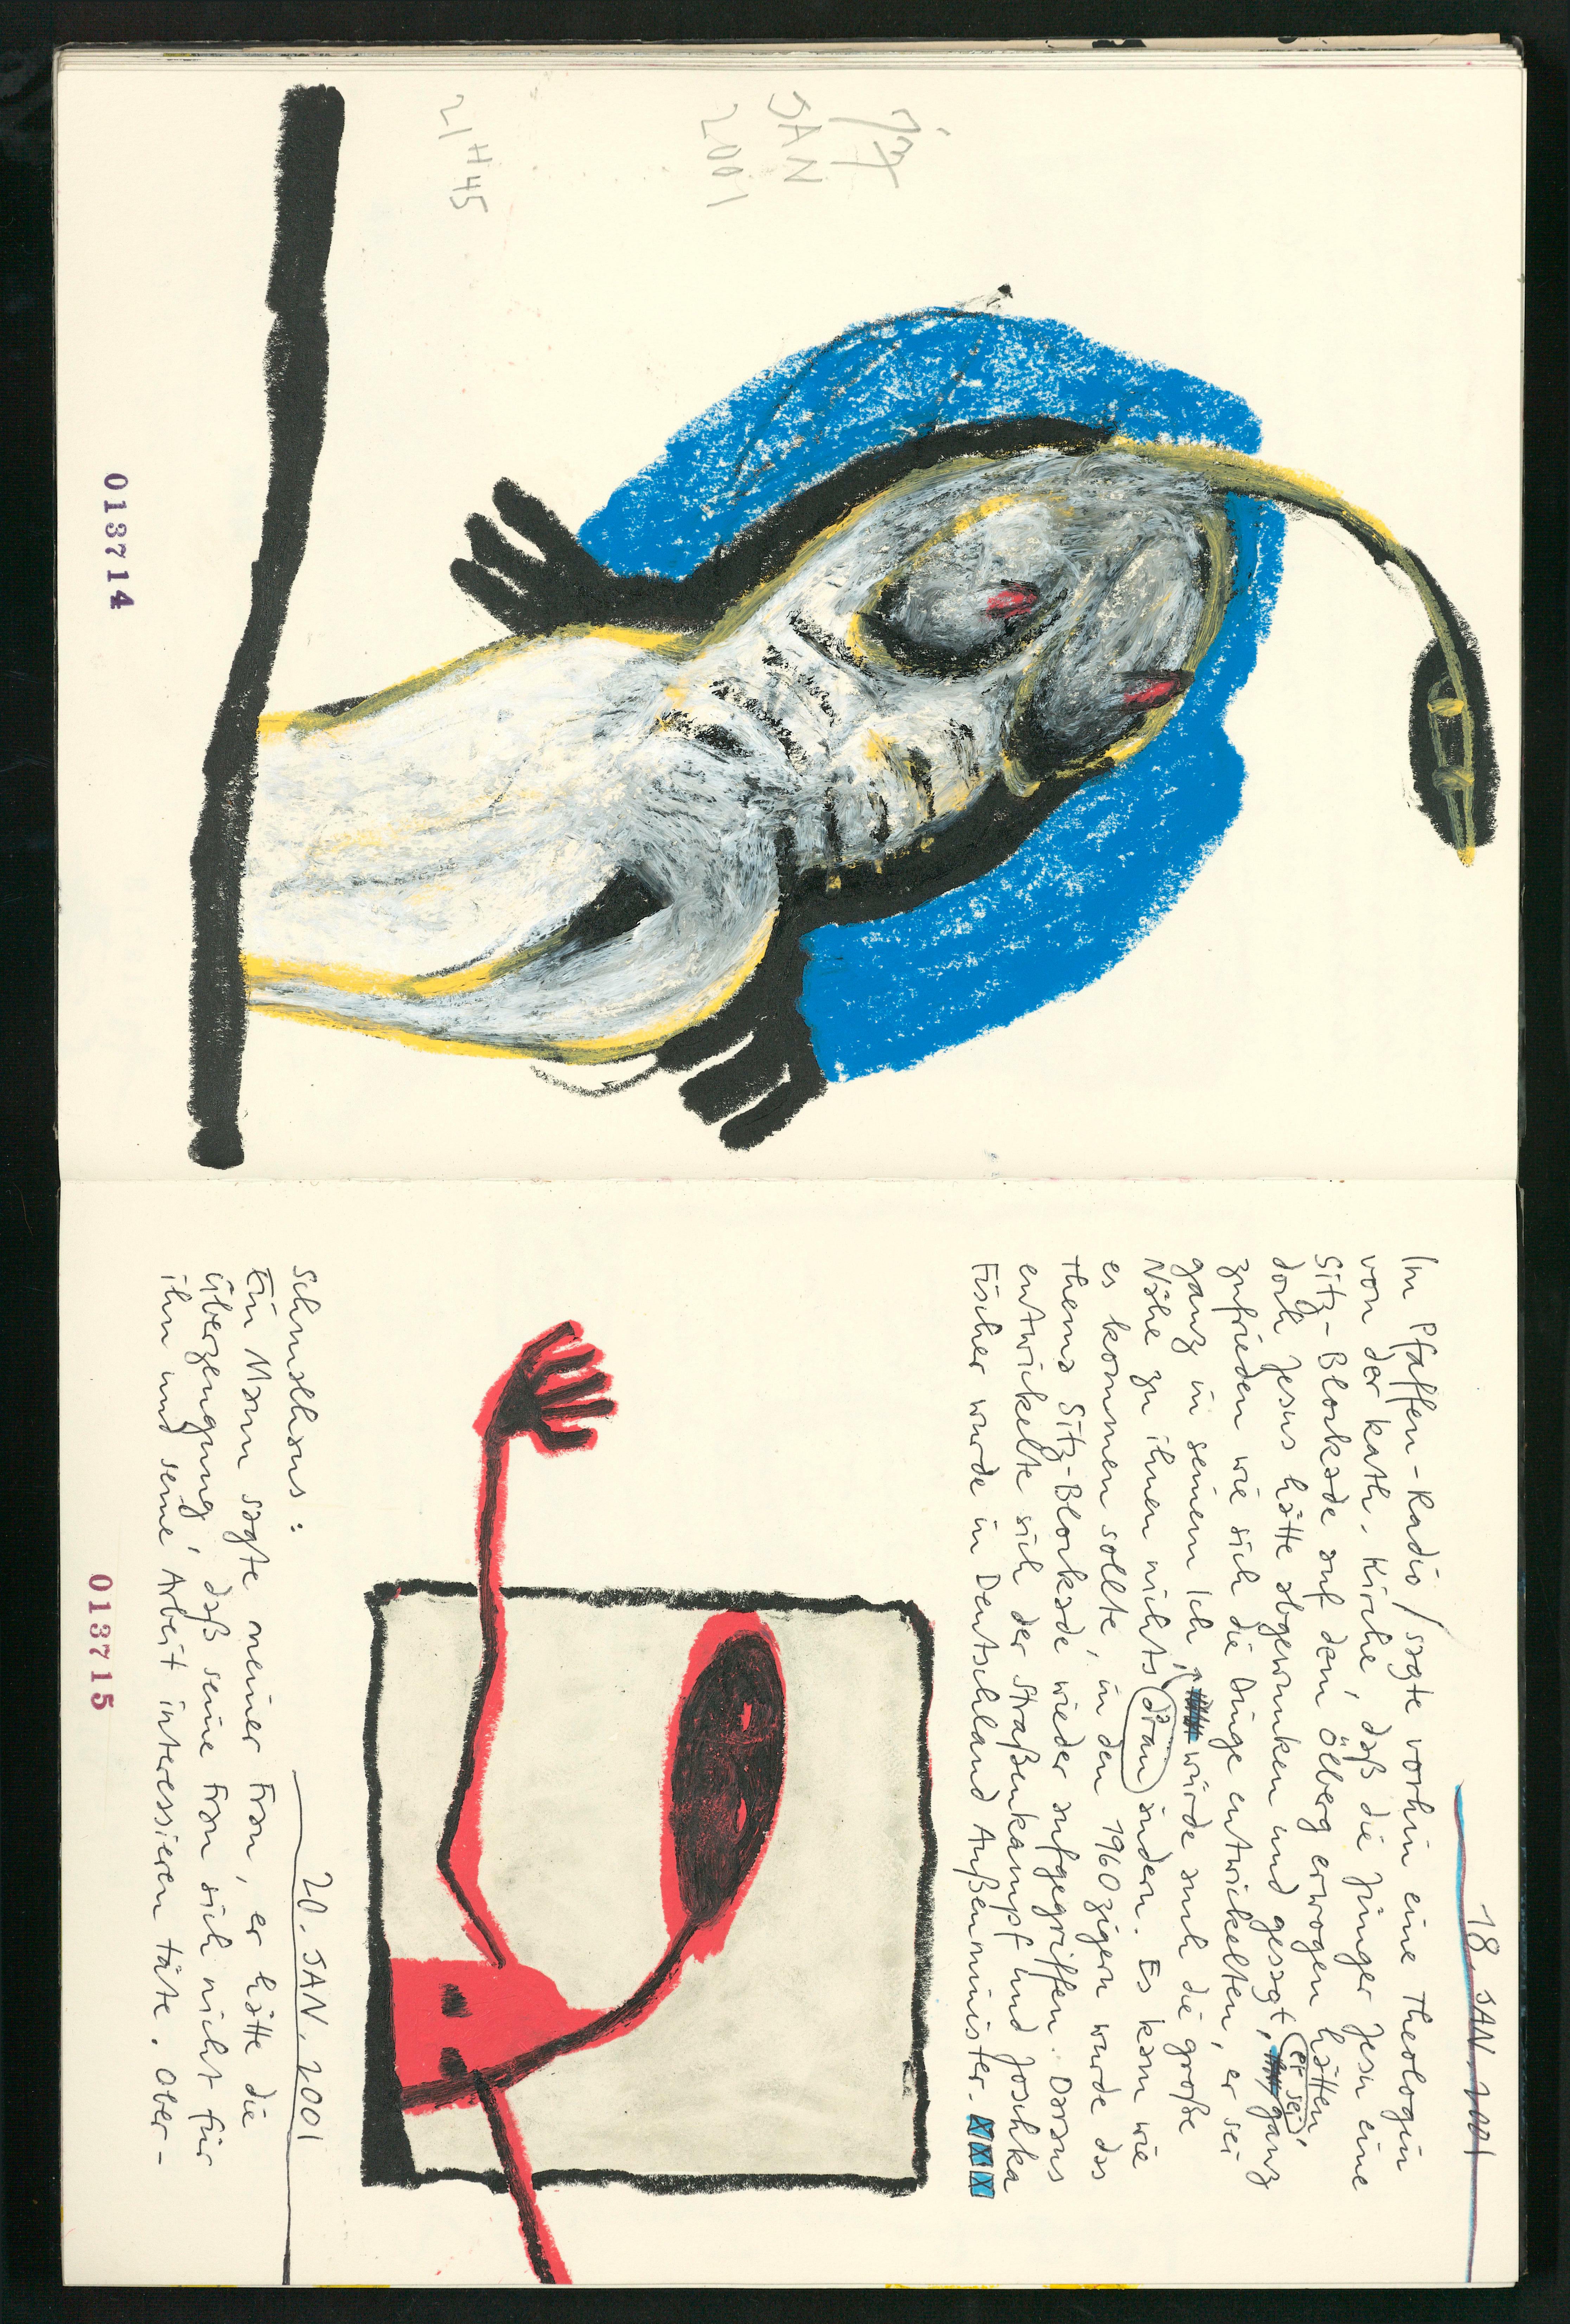 JAN
2001
21H45
013714
18. JAN. 2001
Im Pfaffen-Radio / sagte vorhin eine Theologin
von der kath. Kirche, daß die Jünger Jesu eine
Sitz-Blockade auf dem Ölberg erwogen hätten,
doch Jesus hätte abgewunken und gesagt, er sei ganz
zufrieden wie sich die Dinge entwickelten, er sei
ganz in seinem Ich, würde auch die große
Nähe zu ihnen nichts dran ändern. Es kam wie
es kommen sollte, in den 1960zigern wurde das
Thema Sitz-Blockade wieder aufgegriffen. Daraus
entwickelte sich der Straßenkampf und Joschka
Fischer wurde in Deutschland Außenminister. XXX
20. JAN. 2001
Schmalhans:
Ein Mann sagte meiner Frau, er hätte die
Überzeugung, daß seine Frau sich nicht für
ihn und seine Arbeit interessieren täte. Ober-
013715